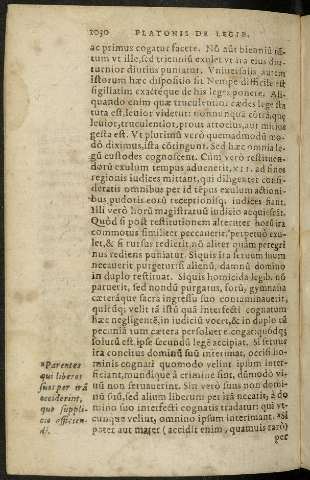 1030 PLATONIS DE LEGIB.
ac primus cogatur facere. Nō aūt bienniū tā-
tum vt ille, sed trienniū exulet vt ira eius diu-
turnior diutius puniatur. Vniuersalis autem
istorum hæc dispositio sit. Nempe difficile est
sigillatim exactéque de his leges ponere. Ali-
quando enim quæ truculentior cædes lege sta
tuta est, leuior videtur: nonnunquā cōtráque
leuior, truculentior, prout atrocius, aut mitius
gesta est. Vt plurimū verò quemadmodū mo-
dò diximus, ista cōtingunt. Sed hæc omnia le-
gū custodes cognoscent. Cùm verò restituen-
dorū exulum tempus aduenerit, XII. ad fines
regionis iudices mittant, qui diligenter consi-
deratis omnibus per id tēpus exulum actioni-
bus, pudoris eorū receptionisq; iudices fiant.
Illi verò horū magistratuū iudicio acquiescāt.
Quòd si post restitutionem alteruter horū ira
commotus similiter peccauerit, perpetuò exu-
let, & si rursus redierit, nō aliter quàm peregri
nus rediens puniatur. Siquis ira seruum suum
necauerit purgetor: si alienū, damnū domino
in duplo restituat. Siquis homicida legib. nō
paruerit, sed nondū purgatus, forū, gymnasia
cæteráque sacra ingressu suo contaminauerit,
quicūq; velit tā istū quā interfecti cognatum
hæc negligentē, in iudiciū vocet, & in duplo tā
pecuniā tum cætera persoluere cogat: quódq;
solutū est, ipse secundū legē accipiat. Si seruus
ira concitus dominū suū interimat, occisi ho-
minis cognati quomodo velint ipsum inter-
ficiant, mundíque à crimine sint, dūmodo vi-
uū non seruauerint. Sin verò suus non domi-
nū suū, sed alium liberum per irā necarit, à do
mino suo interfecti cognatis tradatur: qui vt-
cunque velint, omnino ipsum interimant. *Si
pater aut mater (accidit enim, quamuis rarò)
per
*Parentes
qui liberos
suos per irā
occiderint,
quo suppli-
cio afficien-
di.